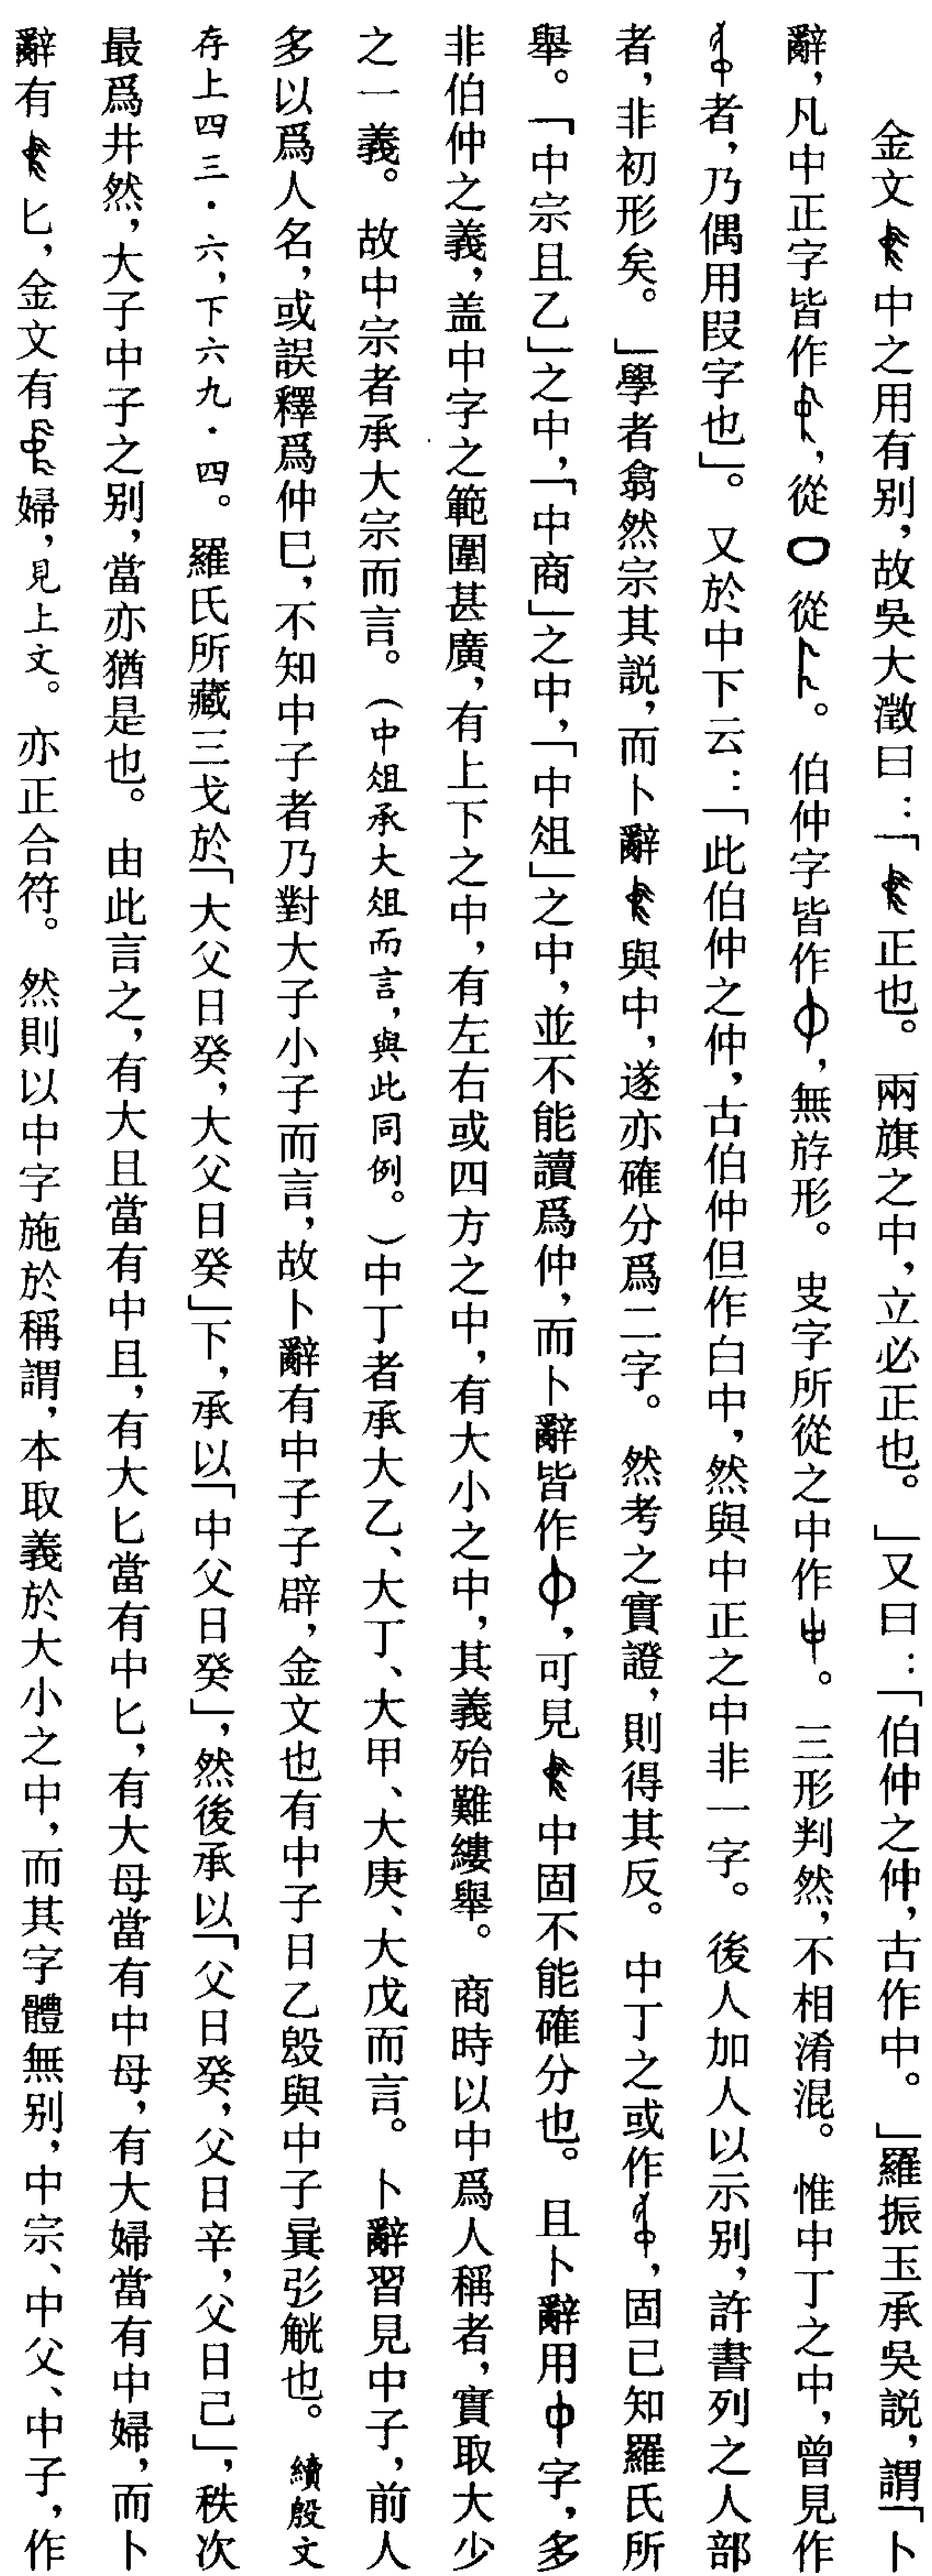 金文中之用有别，故吳大澂曰：「正也。兩旗之中，立必正也。」又曰：「伯仲之仲，古作中。」羅振玉承吳説，謂「卜
辭，凡中正字皆作，從從。伯仲字皆作，無斿形。史字所從之中作。三形判然，不相淆混。惟中丁之中，曾見作
者，乃偶用叚字也」。又於中下云：「此伯仲之仲，古伯仲但作白中，然與中正之中非一字。後人加人以示别，許書列之人部
者，非初形矣。」學者翕然宗其説，而卜辭與中，遂亦確分爲二字。然考之實證，則得其反。中丁之或作，固已知羅氏所
舉。「中宗且乙」之中，「中商」之中，「中俎」之中，並不能讀爲仲，而卜辭皆作，可見中固不能確分也。且卜辭用字，多
非伯仲之義，盖中字之範圍甚廣，有上下之中，有左右或四方之中，有大小之中，其義殆難縷舉。商時以中爲人稱者，實取大少
之一義。故中宗者承大宗而言。（中俎承大俎而言，與此同例。）中丁者承大乙、大丁、大甲、大庚、大戊而言。卜辭習見中子，前人
多以爲人名，或誤釋爲仲巳，不知中子者乃對大子小子而言，故卜辭有中子子辟，金文也有中子日乙𣪘與中子㠱弜觥也。續殷文
存上四三·六，下六九·四。羅氏所藏三戈於「大父日癸，大父日癸」下，承以「中父日癸」，然後承以「父日癸，父日辛，父日己」，秩次
最爲井然，大子中子之别，當亦猶是也。由此言之，有大且當有中且，有大匕當有中匕，有大母當有中母，有大婦當有中婦，而卜
辭有匕，金文有婦，見上文。亦正合符。然則以中字施於稱謂，本取義於大小之中，而其字體無别，中宗、中父、中子，作